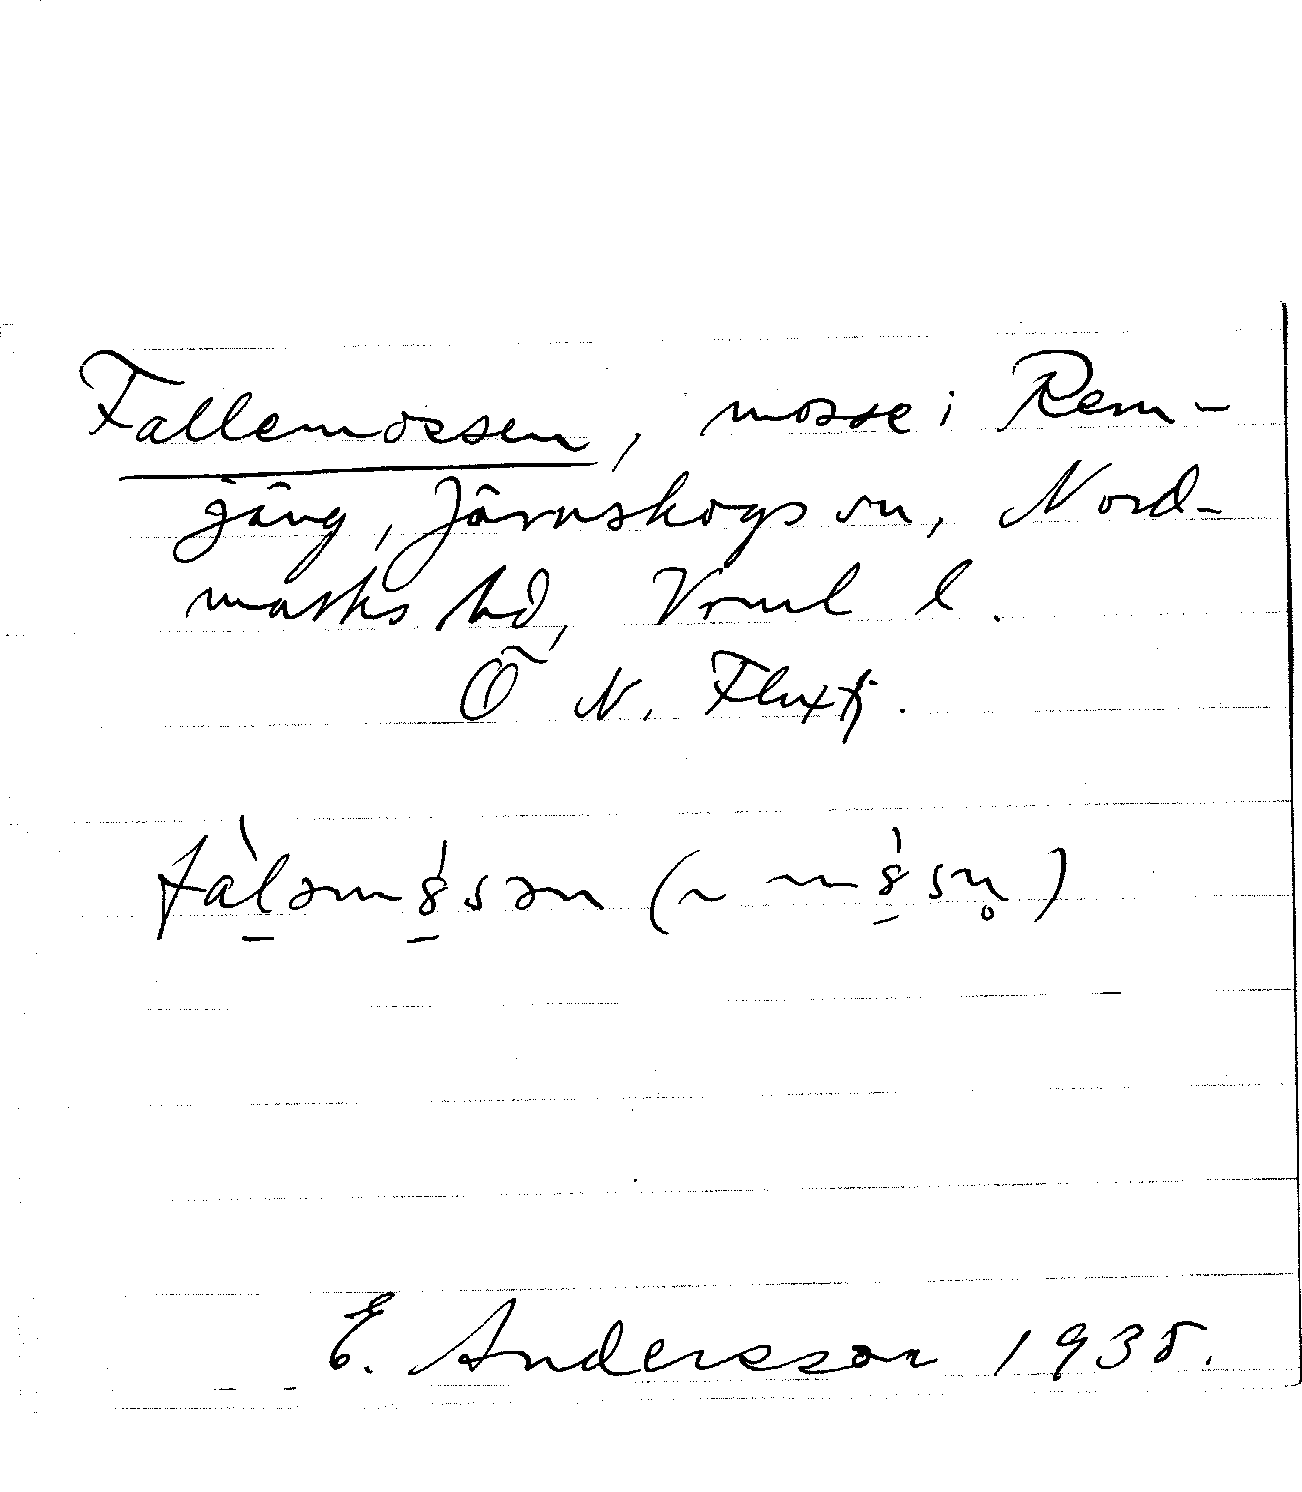 Fallemossen, mosse i Rem-
jäng, Järnskogs sn, Nord-
marks hd, Vrml l.
Ö N. Fluxtj.
fàləm8́sən (~ m8́sn̥)
E. Andersson 1935.